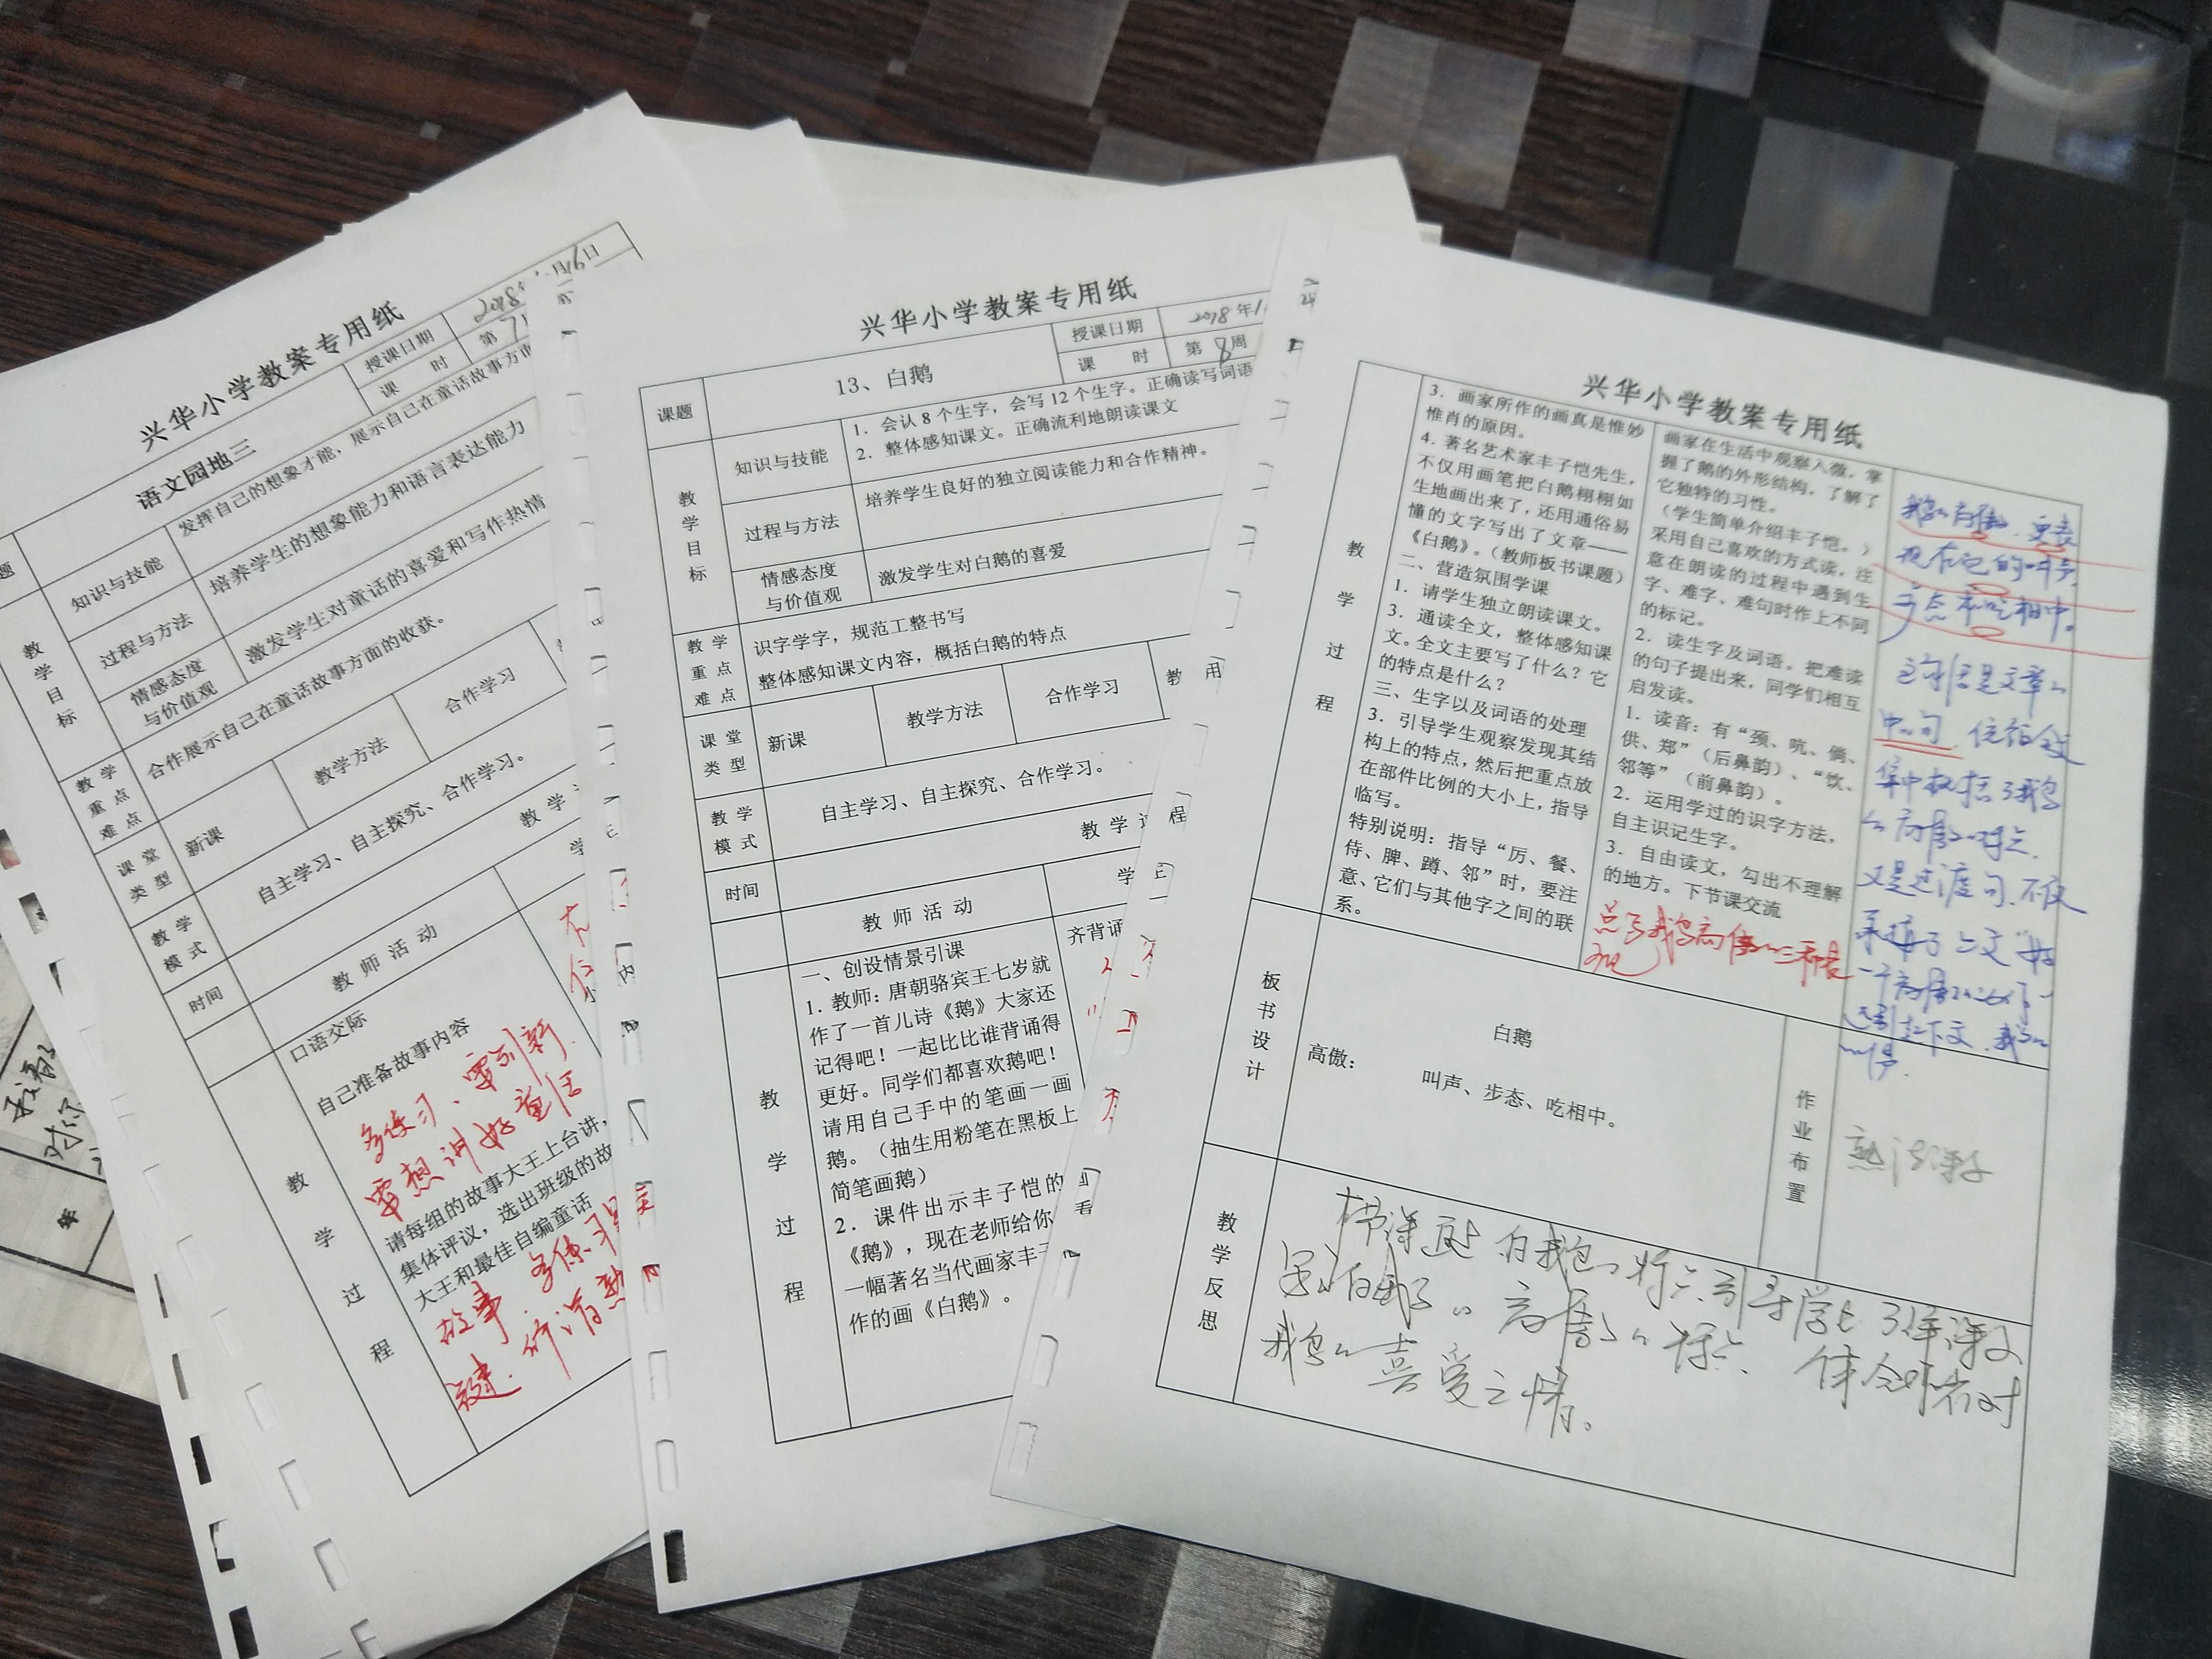 兴华小学教案专用纸
授课日期
2018
月16日
语文园地三
课 时
第 7
知识与技能
发挥自己的想象才能，展示自己在童话故事方面
教学目标
过程与方法
培养学生的想象能力和语言表达能力
情感态度与价值观
激发学生对童话的喜爱和写作热情
教学重点难点
合作展示自己在童话故事方面的收获。
课堂类型
新课
教学方法
合作学习
教学模式
自主学习、自主探究、合作学习。
教 学
时间
教 师 活 动
学
教学过程
口语交际
自己准备故事内容
多练习、
讲好童话
请每组的故事大王上台讲，
集体评议，选出班级的故
大王和最佳自编童话
故事
兴华小学教案专用纸
课题
13、白鹅
授课日期
2018 年1
课 时
第 8周
教学目标
知识与技能
1．会认 8 个生字，会写 12 个生字。正确读写词语
2．整体感知课文。正确流利地朗读课文
过程与方法
培养学生良好的独立阅读能力和合作精神。
情感态度与价值观
激发学生对白鹅的喜爱
教学重点难点
识字学字，规范工整书写
整体感知课文内容，概括白鹅的特点
课堂类型
新课
教学方法
合作学习
教 用
教学模式
自主学习、自主探究、合作学习。
教 学 过 程
时间
教 师 活 动
学
教学过程
一、创设情景引课
齐背诵
1. 教师：唐朝骆宾王七岁就
作了一首儿诗《鹅》大家还
记得吧！一起比比谁背诵得
更好。同学们都喜欢鹅吧！
请用自己手中的笔画一画
鹅。（抽生用粉笔在黑板上
简笔画鹅）
2．课件出示丰子恺的
《鹅》，现在老师给你
一幅著名当代画家丰子
作的画《白鹅》。
兴华小学教案专用纸
教学过程
3．画家所作的画真是惟妙
惟肖的原因。
4．著名艺术家丰子恺先生，
不仅用画笔把白鹅栩栩如
生地画出来了，还用通俗易
懂的文字写出了文章——
《白鹅》。（教师板书课题）
二、营造氛围学课
1．请学生独立朗读课文。
3．通读全文，整体感知课
文。全文主要写了什么？它
的特点是什么？
三、生字以及词语的处理
3．引导学生观察发现其结
构上的特点，然后把重点放
在部件比例的大小上，指导
临写。
特别说明：指导“厉、餐、
侍、脾、蹲、邻”时，要注
意、它们与其他字之间的联
系。
画家在生活中观察入微，掌
握了鹅的外形结构，了解了
它独特的习性。
（学生简单介绍丰子恺。）
采用自己喜欢的方式读，注
意在朗读的过程中遇到生
字、难字、难句时作上不同
的标记。
2．读生字及词语。把难读
的句子提出来，同学们相互
启发读。
1．读音：有“颈、吭、倘、
供、郑”（后鼻韵）、“饮、
邻等”（前鼻韵）。
2．运用学过的识字方法，
自主识记生字。
3．自由读文，勾出不理解
的地方。下节课交流
鹅的高傲，更表
现在它的叫声，
步态和吃相中。
这句话是文章的
中心句，统领全文
集中概括了鹅
的高傲的特点，
又是过渡句，不仅
承接了上文
引起下文
板书设计
白鹅
高傲：
叫声、步态、吃相中。
作业布置
教学反思
本节课
喜爱之情。